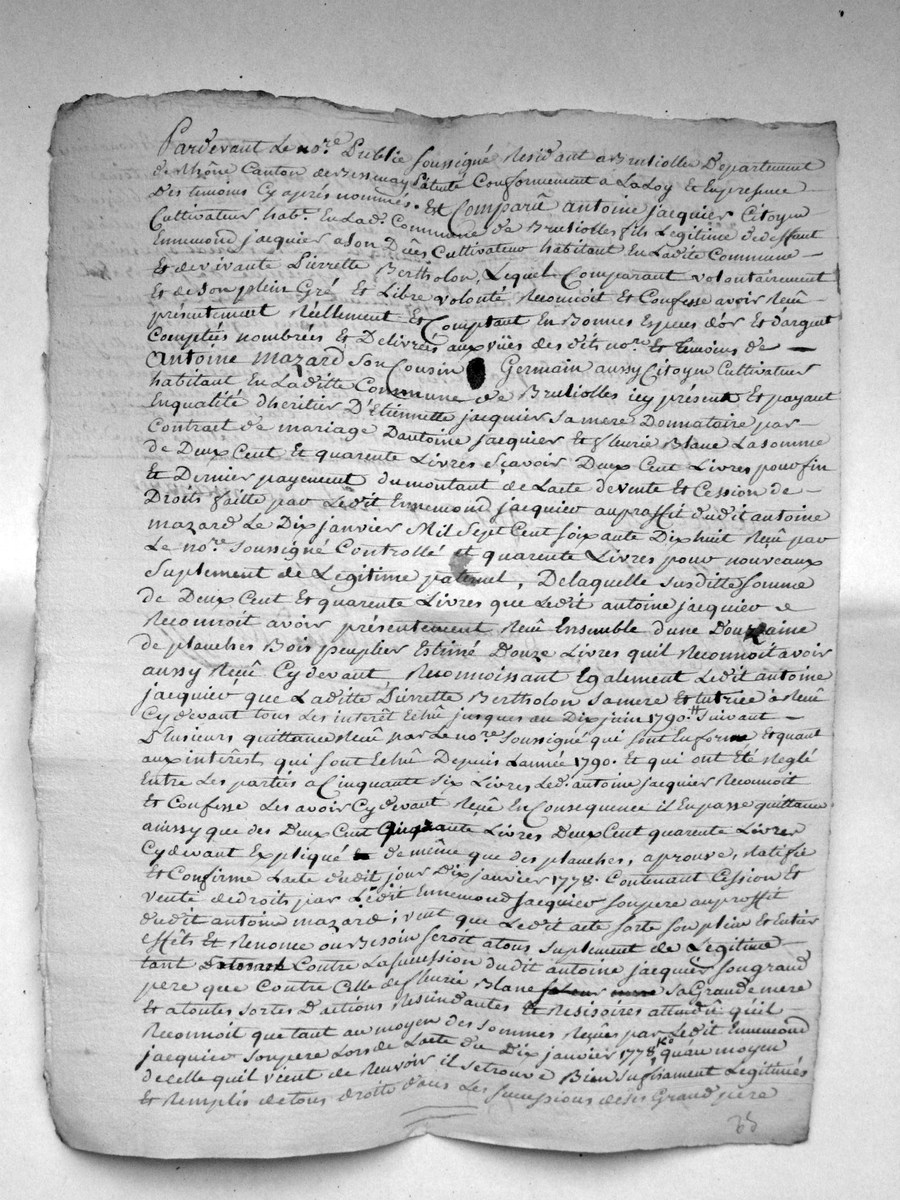 Pardevant Le no.re Public soussigné Residant a Brusiolles Departement
de Rhône Canton de Bessenay Patuté Conformement a La Loy Et En presence
Des temoins Cy aprés nommés. Est Comparu antoine jacquier Citoyen
Cultivateur hab.t En Lad.e Commune de Brusiolles fils Legitime de deffunt
Ennemond jacquier a son Dêcés Cultivateur habitant En Ladite Commune
Et de vivante Pierrette Bertholon, Lequel Comparant volontairement
Et de son plein Gré Et Libre volonté, Reconnoit Et Confesse avoir Reçû
présentement Réellement Et Comptant En Bonnes Especes d'or Et d'argent
Comptées nombrées Et Delivrées aux vües des dits no.re Et temoins de
Antoine Mazard son Cousin Germain aussy Citoyen Cultivateur
habitant En Laditte Commune de Brusiolles icy présent Et payant
En qualité dheritier D'Etiennette jacquier sa mere Donnataire par
Contrat de mariage Dantoine jacquier Et fleurie Blanc La somme
de Deux Cent Et quarente Livres sçavoir Deux Cent Livres pour fin
Et Dernier payement du montant de Lacte de vente Et Cession de
Droits faitte par Ledit Ennemond jacquier au proffit dudit antoine
mazard Le Dix janvier Mil Sept Cent Soixante Dix huit Reçû par
Le no.re soussigné Controllé et quarente Livres pour nouveaux
Suplement de Legitime paternel, De laquelle susditte somme
de Deux Cent Et quarente Livres que Ledit antoine jacquier
Reconnoit avoir présentement Reçû Ensemble d'une Douzaine
de planches Bois peuplier Estimé Douze Livres quil Reconnoit avoir
aussy Reçû Cy devant Reconnoissant Egalement Ledit antoine
jacquier que Ladite Pierrette Bertholon sa mere Et tutrice à Reçû
Cy devant tous Les interêt Echû jusques au Dix juin 1790. Suivant
Plusieurs quittance Reçû par Le no.re soussigné qui sont En forme Et quant
aux interêst qui sont Echû Depuis Lannée 1790. Et qui ont été Reglé
Entre Les parties a Cinquante Six Livres Led. antoine jacquier Reconnoit
Et Confesse Les avoir Cy devant Reçû En Consequence il En passe quittance
ainssy que des Deux Cent Cinquante Livres Deux Cent quarente Livres
Cy devant Expliqué de même que des planches, aprouve, Ratifie
Et Confirme Lacte dudit jour Dix janvier 1778. Contenant Cession Et
vente de droits par Ledit Ennemond jacquier son pere au proffit
dudit antoine mazard; veut que Ledit acte sorte son plein Et Entier
effêts Et Renonce ou Besoin seroit a tous suplement de Legitime
tant Contre La succession dudit antoine jacquier son grand
pere que Contre Celle de fleurie Blanc sa Grande mere
Et a toutes sortes D'actions Rescindantes Et Resisoires attendû qu'il
Reconnoit que tant au moyen des sommes Reçûes par Ledit Ennemond
jacquier son pere Lors de Lacte du Dix janvier 1778 qu'au moyen
de Celle quil vient de Recevoir il se trouve Bien Sufisament Legitimés
Et Remplis de tous droits dans Les successions de ses Grand père